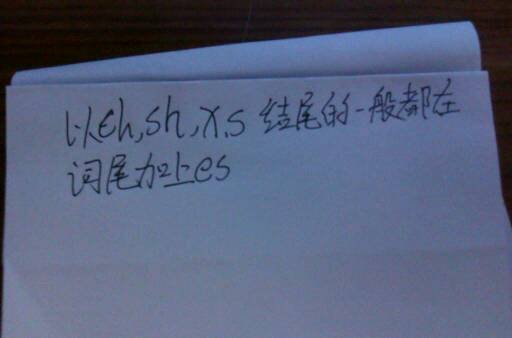 以ch,sh,x,s 结尾的一般都在
词尾加上es